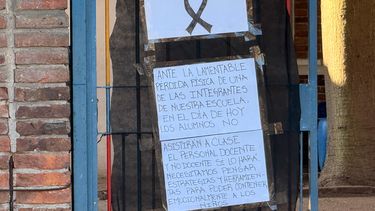 ANTE LA LAMENTABLE
PERDIDA FISICA DE UNA
DE LAS INTEGRANTES
DE NUESTRA ESCUELA.
EN EL DIA DE HOY
LOS ALUMNOS NO
ASISTIRAN A CLASE
EL PERSONAL DOCENTE
Y NO DOCENTE SI LO HARÁ
NECESITAMOS PENSAR
ESTRATEGIAS Y HERRAMIEN
TAS PARA PODER CONTENER
EMOCIONALMENTE A LOS
NIÑOS